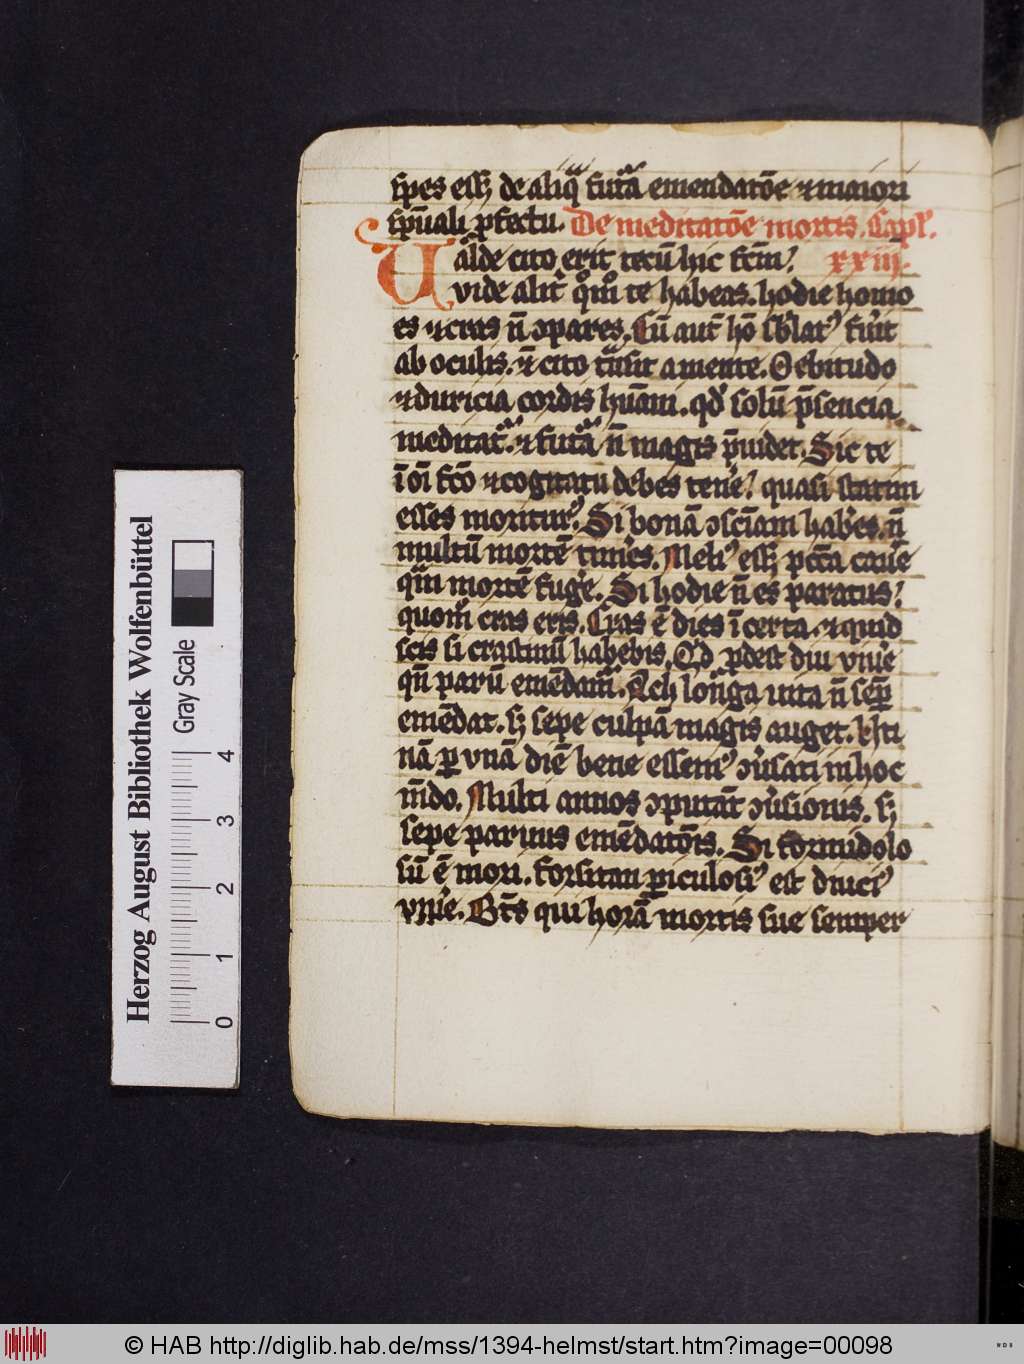 spes eēt de aliqͣ futͣa emendatōe et maiori
sp̄uali ꝓfectu. De meditatōe mortis. Capl̄.
Valde cito erit tecū hic fc̄m? xxiij.
vide alit̓ quom̊ te habeas. hodie homo
es et cras nō ꝯpares. Cū aut̄ hō sb̓lat᷒ fu̓it
ab oculis. et cito tn̄sit a mente. O ebitudo
et duricia cordis hūani. qd̓ solū p̄sencia
meditat̓. et futͣa nō magis p̄uidet. Sic te
ī oī fc̄o et cogitatu debes ten̓e? quasi statim
esses moritur᷒. Si bonā ꝯsc̄iam hab̓es. nō
multū mortē tim̓es. Meli᷒ eēt pctā cau̓e
qͣm mortē fug̓e. Si hodie nō es paratus?
quom̊ cras eris. Cras ē dies īcerta. et quid
scis si crastinū habebis. Qd ꝓdest diu viu̓e
qn̄ parū emēdam᷒. Ach longa uita nō semꝑ
emēdat. sꝫ sepe culpā magis auget. Uti
nā ꝑ vnā diē bene essem᷒ ꝯu̓sati in hoc
mūdo. Multi annos ꝯputāt ꝯu̓sionis. sꝫ
sepe paruus emēdatōis. Si formidolo
sū ē mori. forsitan ꝑiculosi᷒ est diuci᷒
viu̓e. Bt̄s qui horā mortis sue semper
Herzog August Bibliothek Wolfenbüttel
Gray Scale
0 1 2 3 4
© HAB http://diglib.hab.de/mss/1394-helmst/start.htm?image=00098